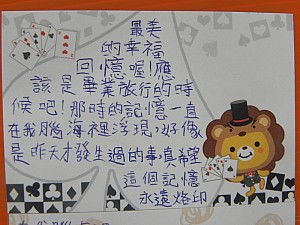 最美
的幸福
回憶喔!應
該是畢業旅行的時
候吧!那時的記憶一直
在我腦海裡浮現,好像
是昨天才發生過的事真希望
這個記憶
永遠烙印